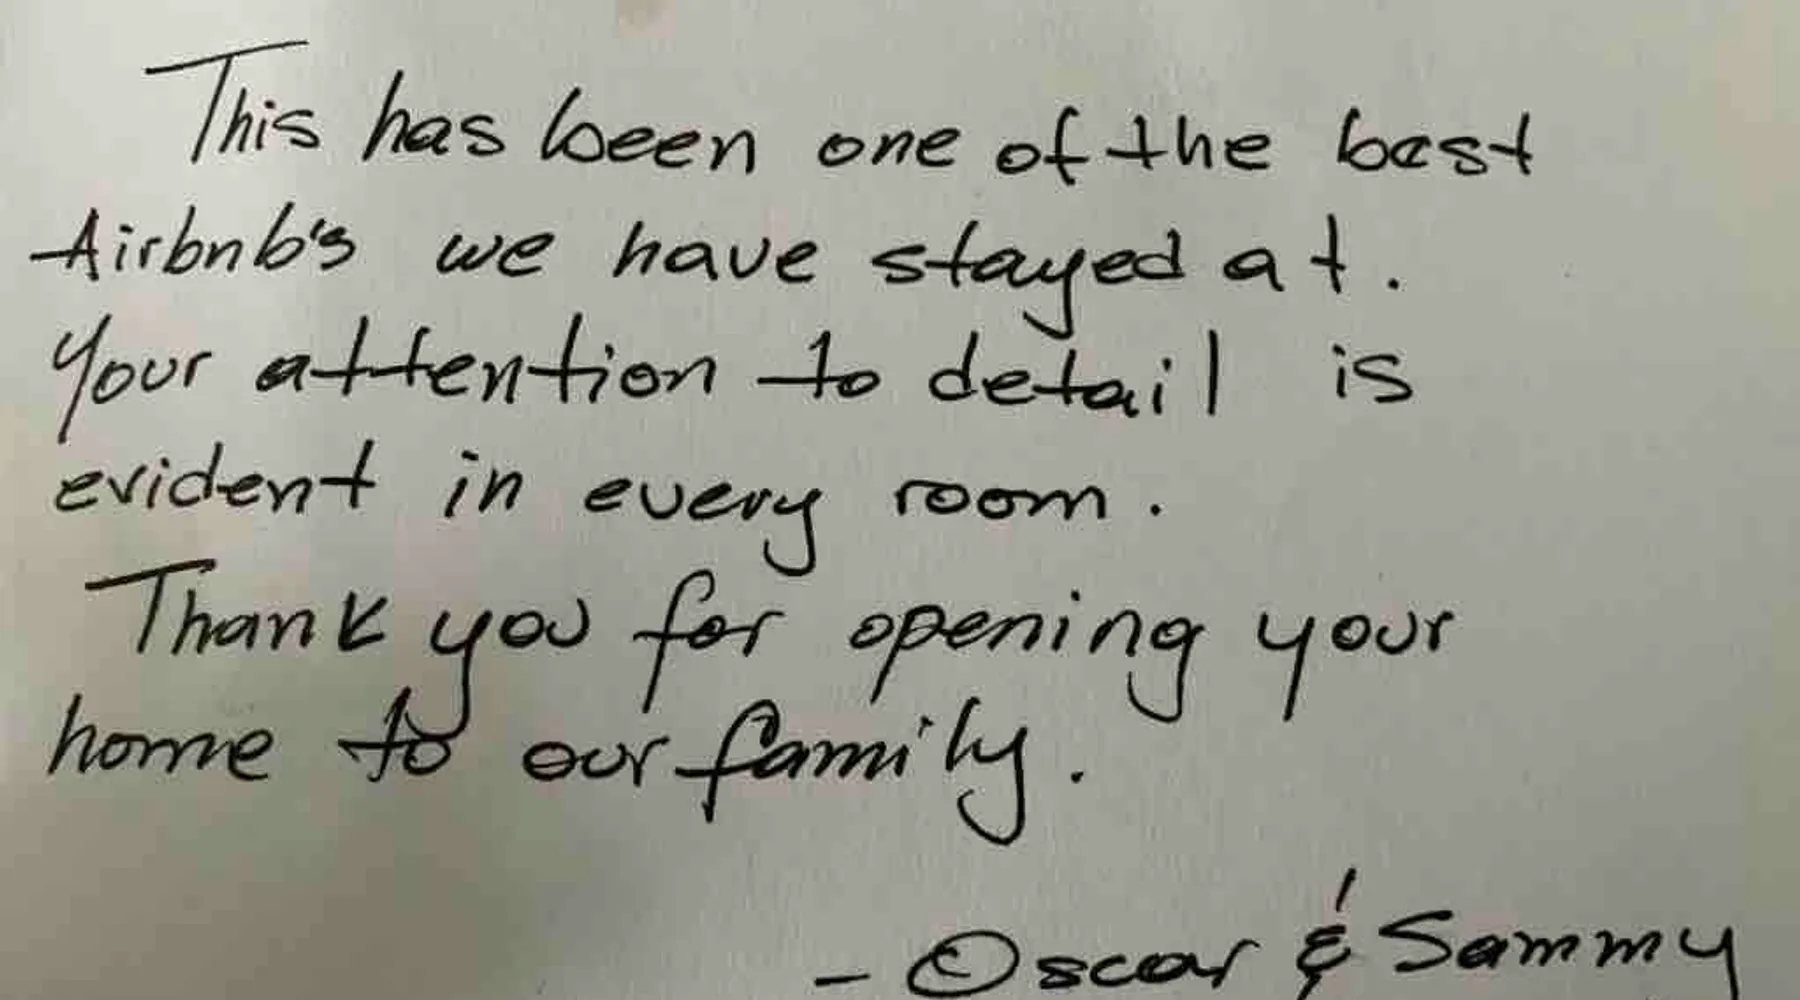 This has been one of the best
Airbnb's we have stayed at.
Your attention to detail is
evident in every room.
Thank you for opening your
home to our family.
- Oscar & Sammy